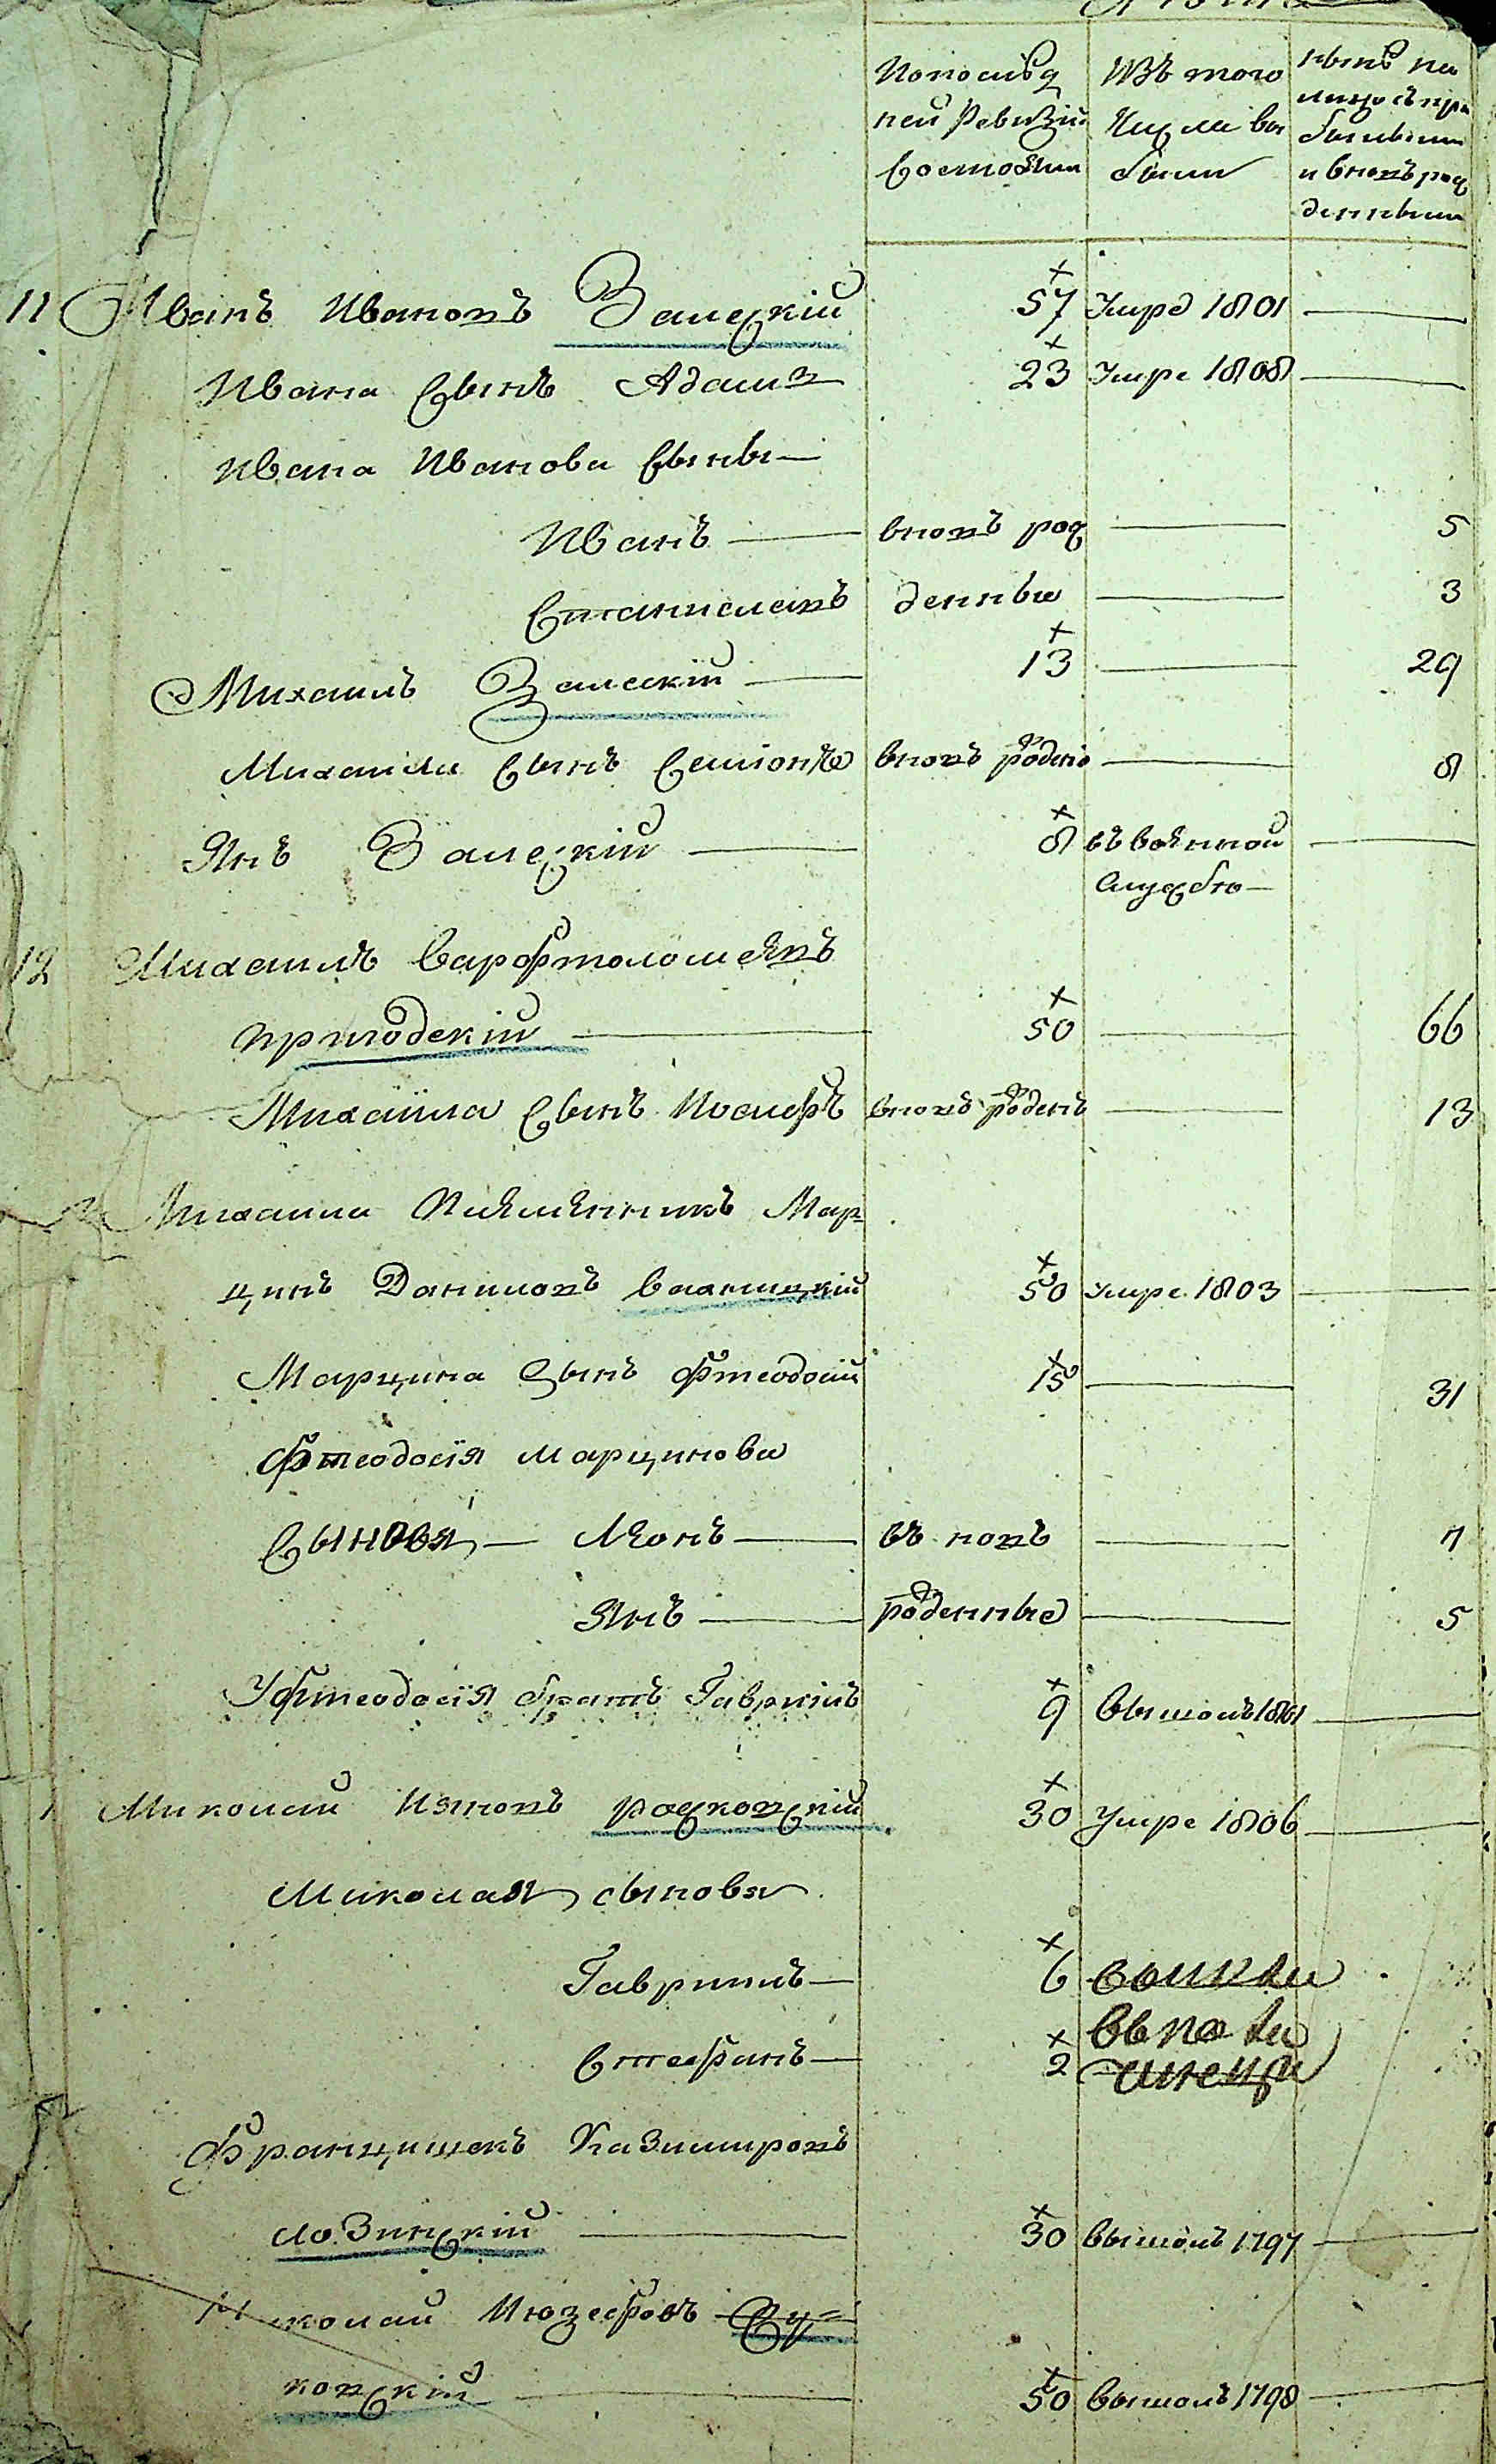 По послѣд
ней Ревизіи
Состояли
Изъ того
Числа вы
были
нынѣ на
лицо съ при
бывшими
и вновь рож
денными
11 Иванъ Ивановъ Залескій 57 Умре 1801
Ивана Сынъ Адамъ 23 Умре 1808
Ивана Иванова Сыны
Иванъ вновь рож 5
Станиславъ денные 3
Михаилъ Залескій 13 29
Михаила Сынъ Семіонъ вновь рожденъ 8
Янъ Залескій 8 въ воянной
службѣ
12 Михаилъ Варфтоломеявъ
Пригодскій 50 66
Михаіила Сынъ Иосифъ вновь рожденъ 13
Михаила Плямянникъ Мар
цинъ Даниловъ 50 умре 1803
Марцина Сынъ Фтеодосій 15 31
Фтеодосія Марцинова
Сыновья Леонъ въ новь 7
Янъ рожденные 5
Уфтеодосія братъ Гавріилъ 9 Вышолъ 1801
Миколай Рацковскій 30 Умре 1806
Миколая сыновя
Гавриилъ 6
Стефанъ 2
Францишекъ Казимировъ
Лозинскій 30 Вышолъ 1797
Николай Июзефовъ Су=
ковскій 50 Вышолъ 1798